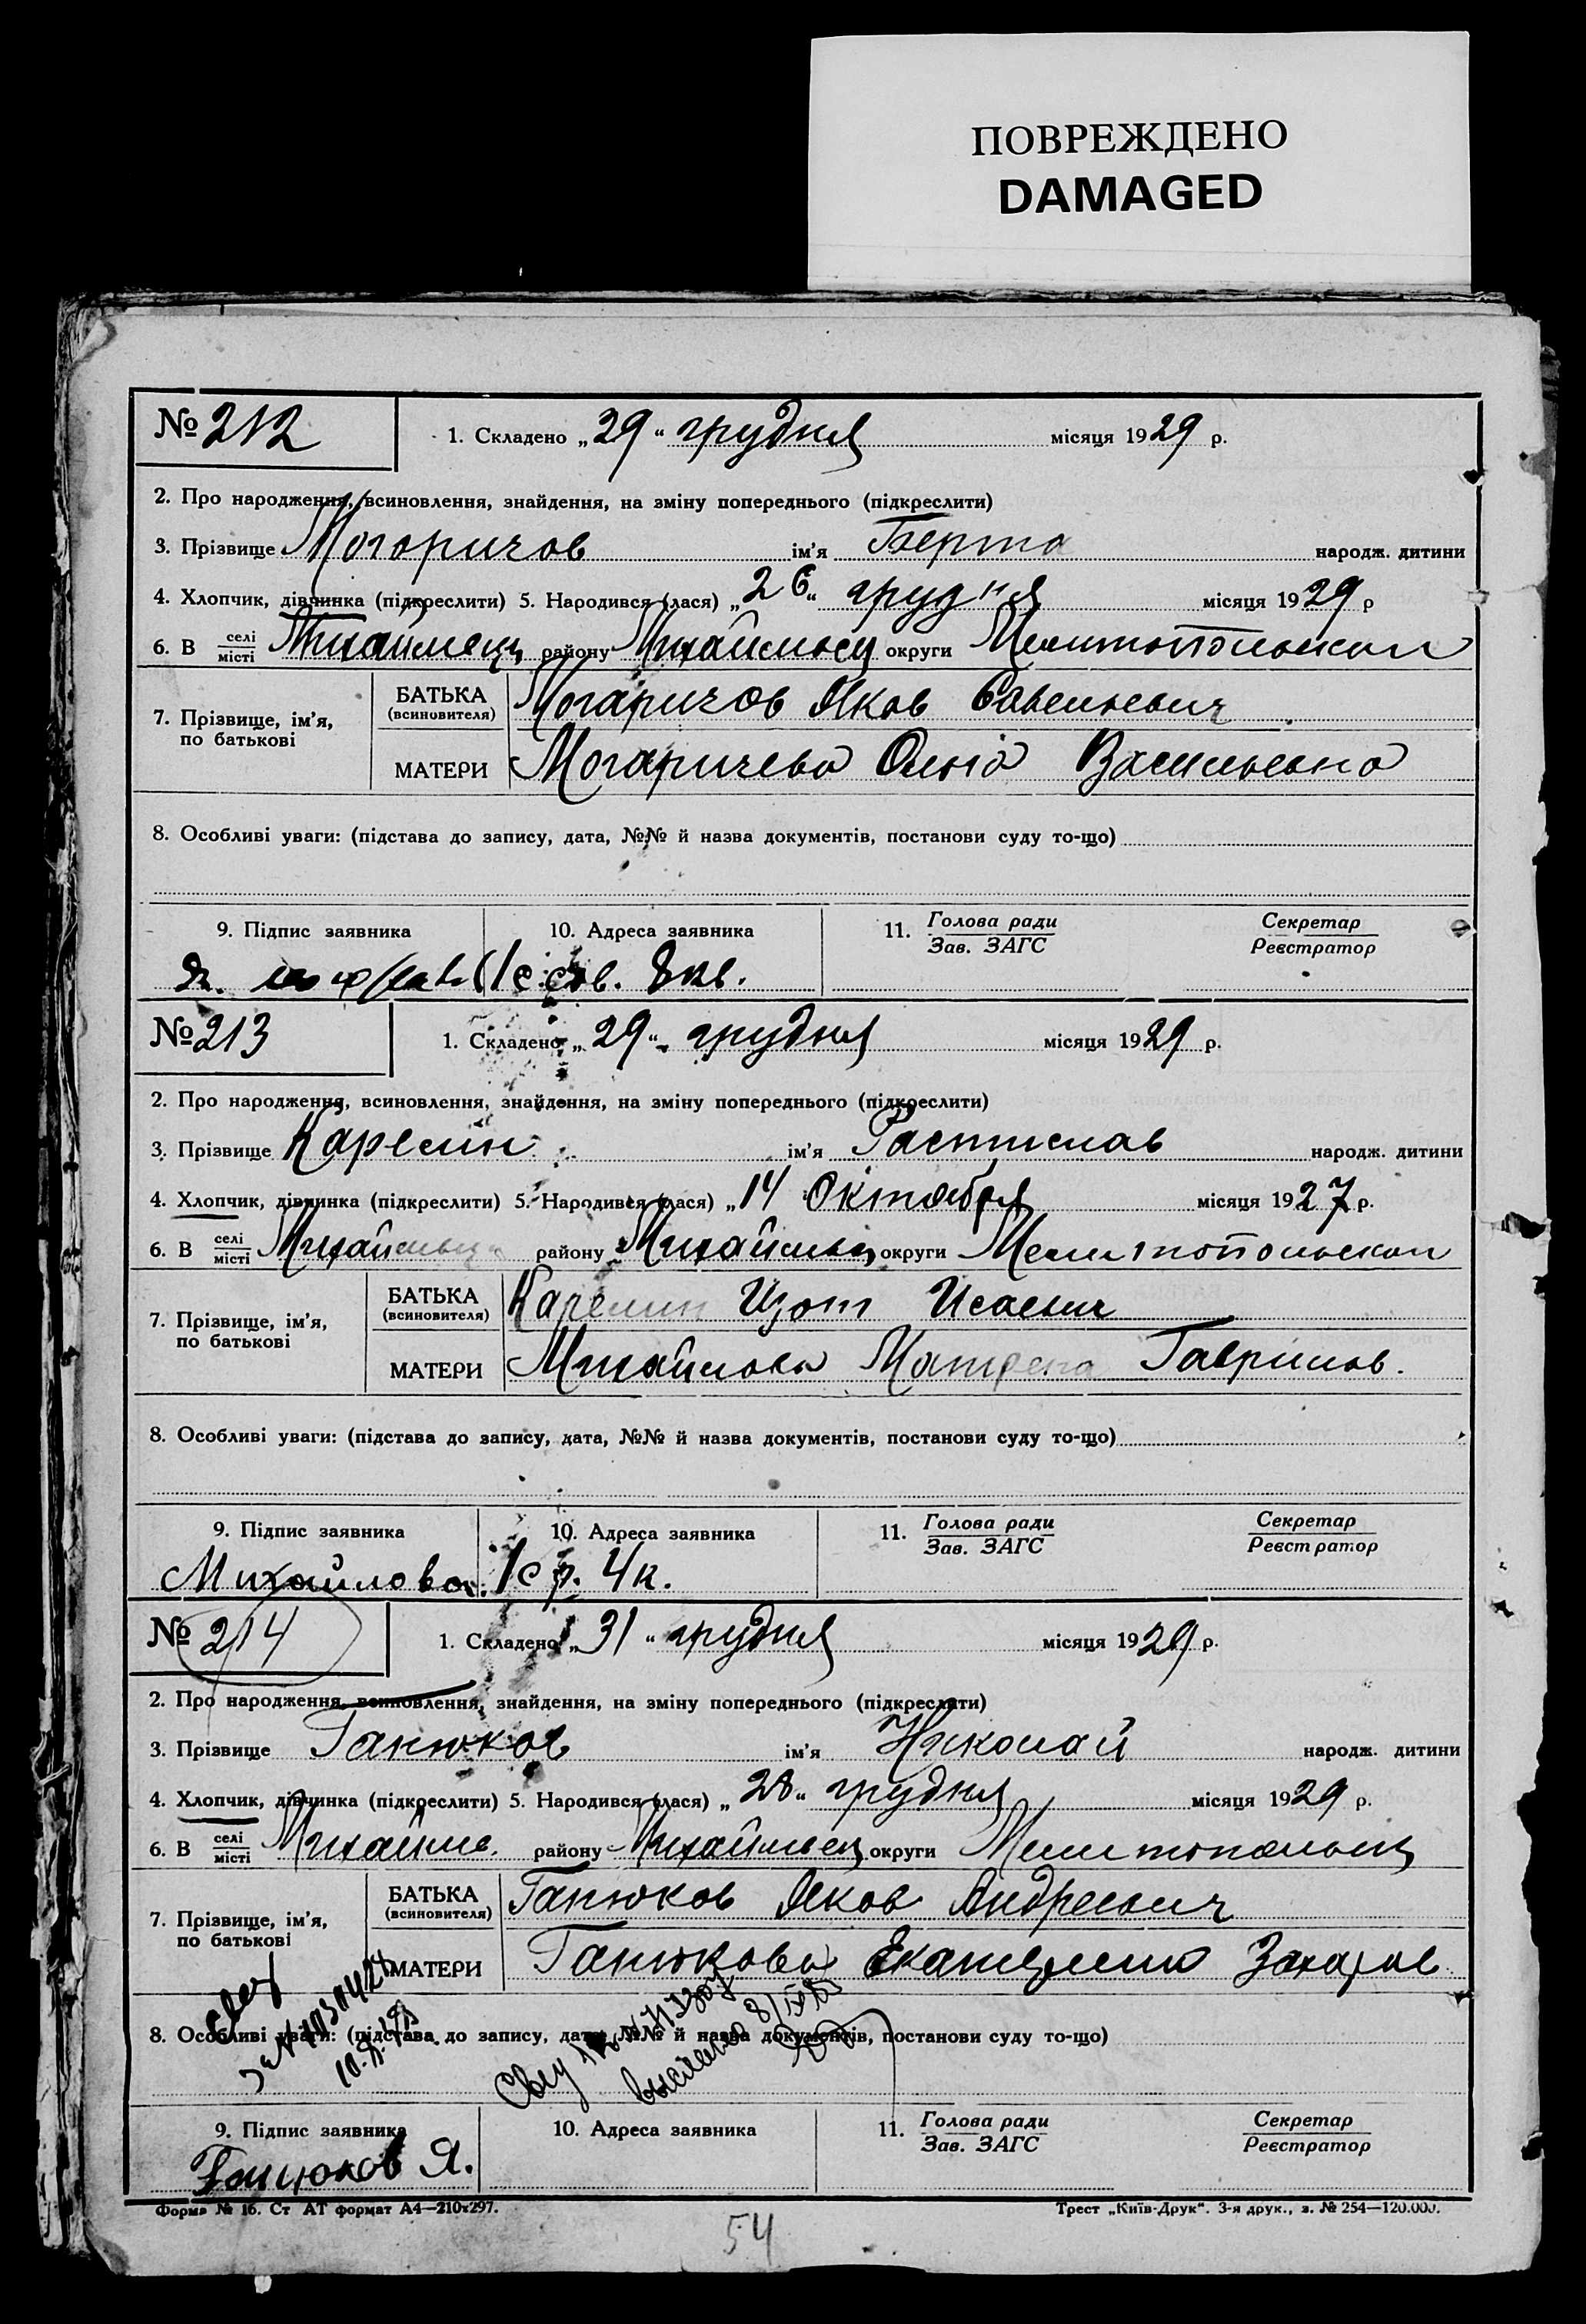 ПОВРЕЖДЕНО
DAMAGED
№ 212
1. Складено „29“ грудня місяця 1929 р.
2. Про народження, всиновлення, знайдення, на зміну попереднього (підкреслити)
3. Прізвище Могоричов ім’я Берта народж. дитини
4. Хлопчик, дівчинка (підкреслити) 5. Народився (лася) „26“ грудня місяця 1929 р
6. В селі місті району округи Мелитопольской
7. Прізвище, ім’я, по батькові
БАТЬКА (всиновителя) Могаричов Яков Савельевич
МАТЕРИ Могаричева Ольга Васильевна
8. Особливі уваги: (підстава до запису, дата, №№ й назва документів, постанови суду то-що)
9. Підпис заявника 10. Адреса заявника 11. Голова ради Секретар
Зав. ЗАГС Реєстратор
8 кв.
№ 213
1. Складено „29“ грудня місяця 1929 р.
2. Про народження, всиновлення, знайдення, на зміну попереднього (підкреслити)
3. Прізвище Карелин ім’я Растислав народж. дитини
4. Хлопчик, дівчинка (підкреслити) 5. Народився (лася) „14 Октября місяця 1927 р.
6. В селі місті району округи Мелитопольской
7. Прізвище, ім’я, по батькові
БАТЬКА (всиновителя) Карелин Изот Исаевич
МАТЕРИ Михайлова Матрена Гаврилов.
8. Особливі уваги: (підстава до запису, дата, №№ й назва документів, постанови суду то-що)
9. Підпис заявника 10. Адреса заявника 11. Голова ради Секретар
Зав. ЗАГС Реєстратор
Михайлова. 4 к.
№ 214
1. Складено „31“ грудня місяця 1929 р.
2. Про народження, всиновлення, знайдення, на зміну попереднього (підкреслити)
3. Прізвище Ганюков ім’я Николай народж. дитини
4. Хлопчик, дівчинка (підкреслити) 5. Народився (лася) „28“ грудня місяця 1929 р.
6. В селі місті Михайлів. району округи
7. Прізвище, ім’я, по батькові
БАТЬКА (всиновителя) Ганюков Яков Андреевич
МАТЕРИ Ганюкова Екатерина Захаров
8. Особливі уваги: (підстава до запису, дата, №№ й назва документів, постанови суду то-що)
9. Підпис заявника 10. Адреса заявника 11. Голова ради Секретар
Зав. ЗАГС Реєстратор
Ганюков Я.
Форма № 16. Ст АТ формат А4—210х297. Трест „Київ-Друк“. 3-я друк., з. № 254—120.000.
54